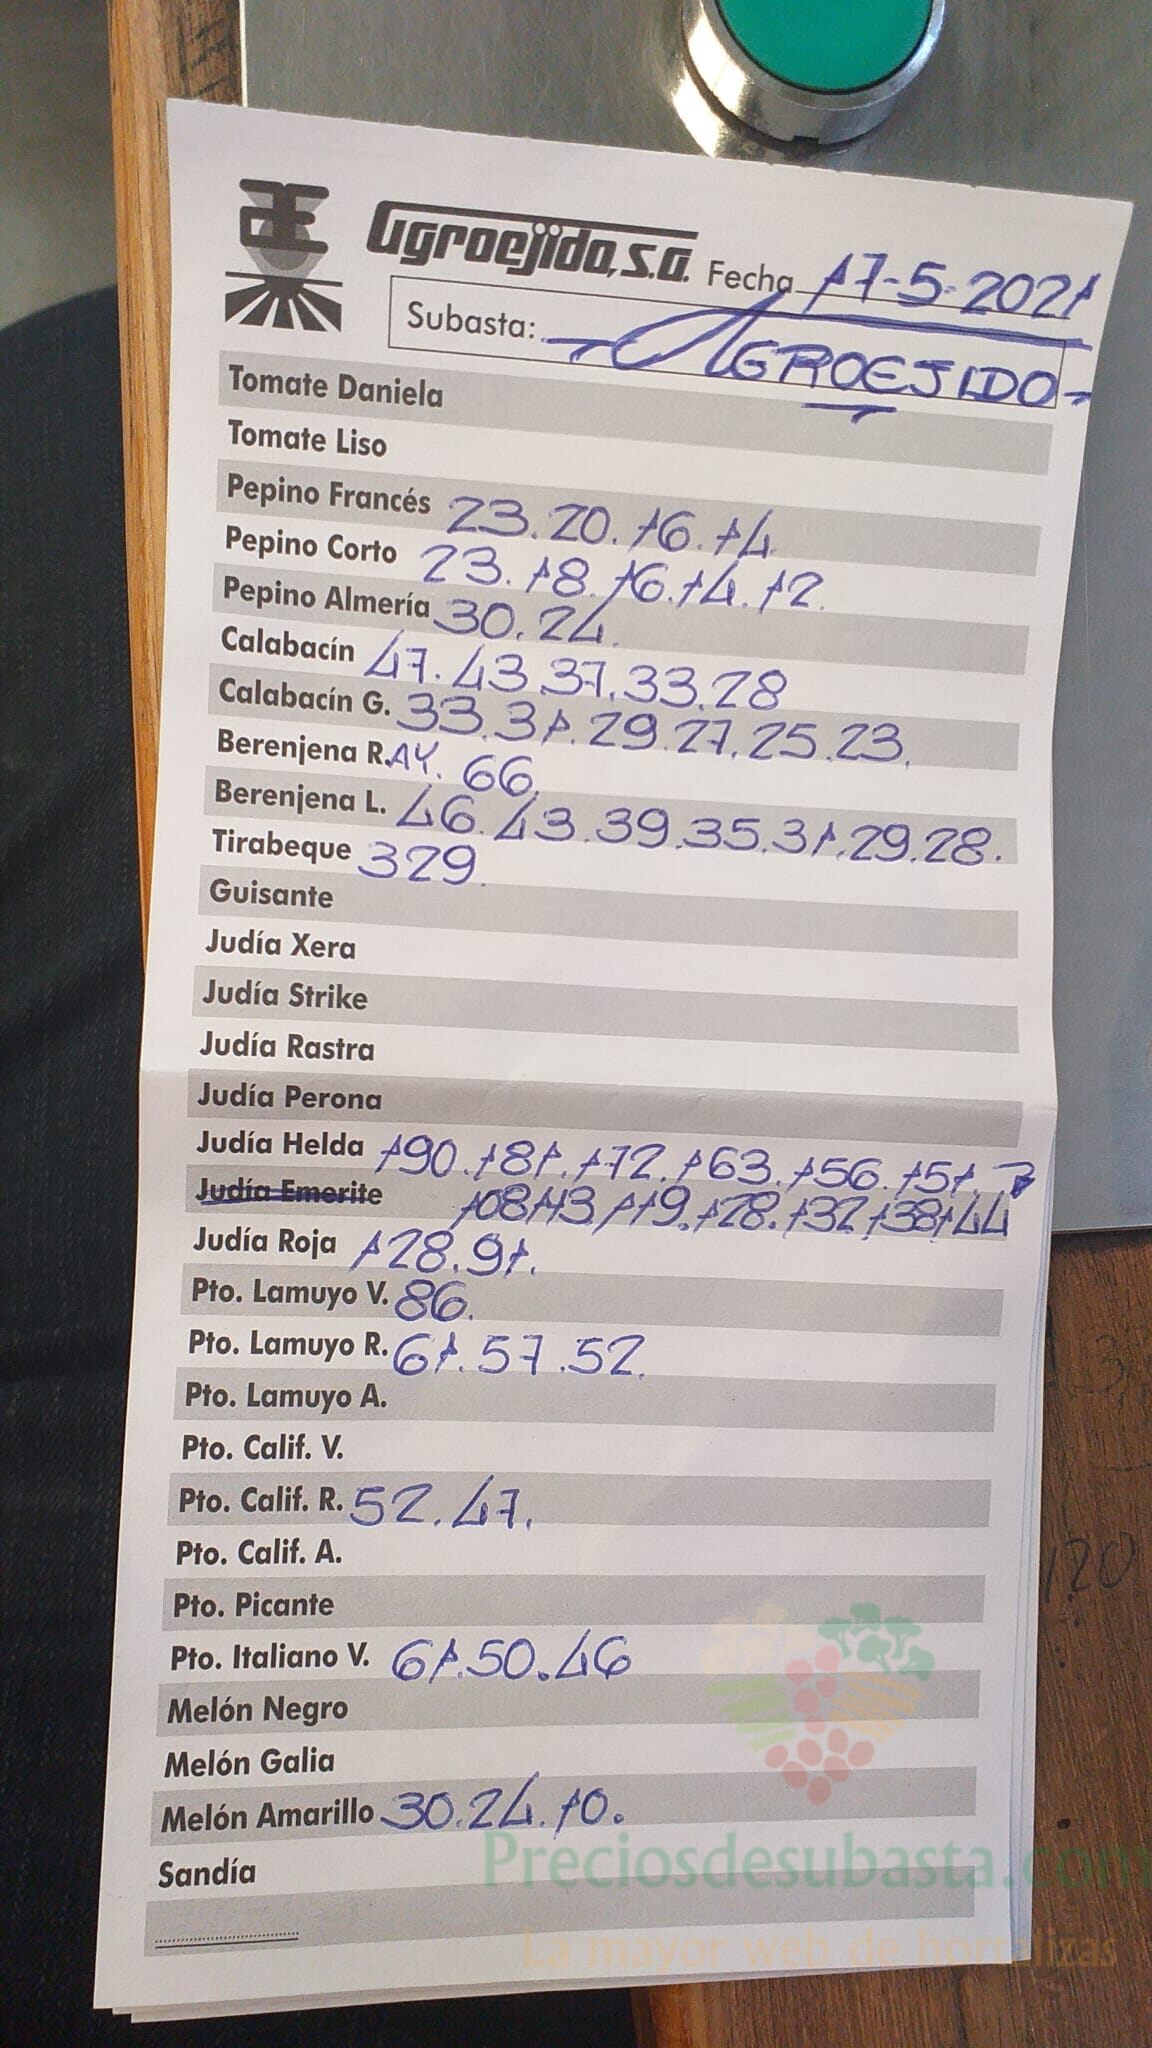 Agroejido, S.A. Fecha 17-5-2021
Subasta: AGROEJIDO
Tomate Daniela
Tomate Liso
Pepino Francés 23. 20. 16. 14
Pepino Corto 23. 18. 16. 14. 12.
Pepino Almería 30. 24.
Calabacín 47. 43. 37. 33. 28
Calabacín G. 33. 31. 29. 27. 25. 23.
Berenjena R.AY. 66.
Berenjena L. 46. 43. 39. 35. 31. 29. 28.
Tirabeque 329.
Guisante
Judía Xera
Judía Strike
Judía Rastra
Judía Perona
Judía Helda 190. 181. 172. 163. 156. 151.
Judía Emerite 108 113. 119. 128. 132 138 144
Judía Roja 128. 91.
Pto. Lamuyo V. 86.
Pto. Lamuyo R. 61. 57. 52.
Pto. Lamuyo A.
Pto. Calif. V.
Pto. Calif. R. 52. 47.
Pto. Calif. A.
Pto. Picante
Pto. Italiano V. 61. 50. 46
Melón Negro
Melón Galia
Melón Amarillo 30. 24. 10.
Sandía
Preciosdesubasta.com
La mayor web de hortalizas
120